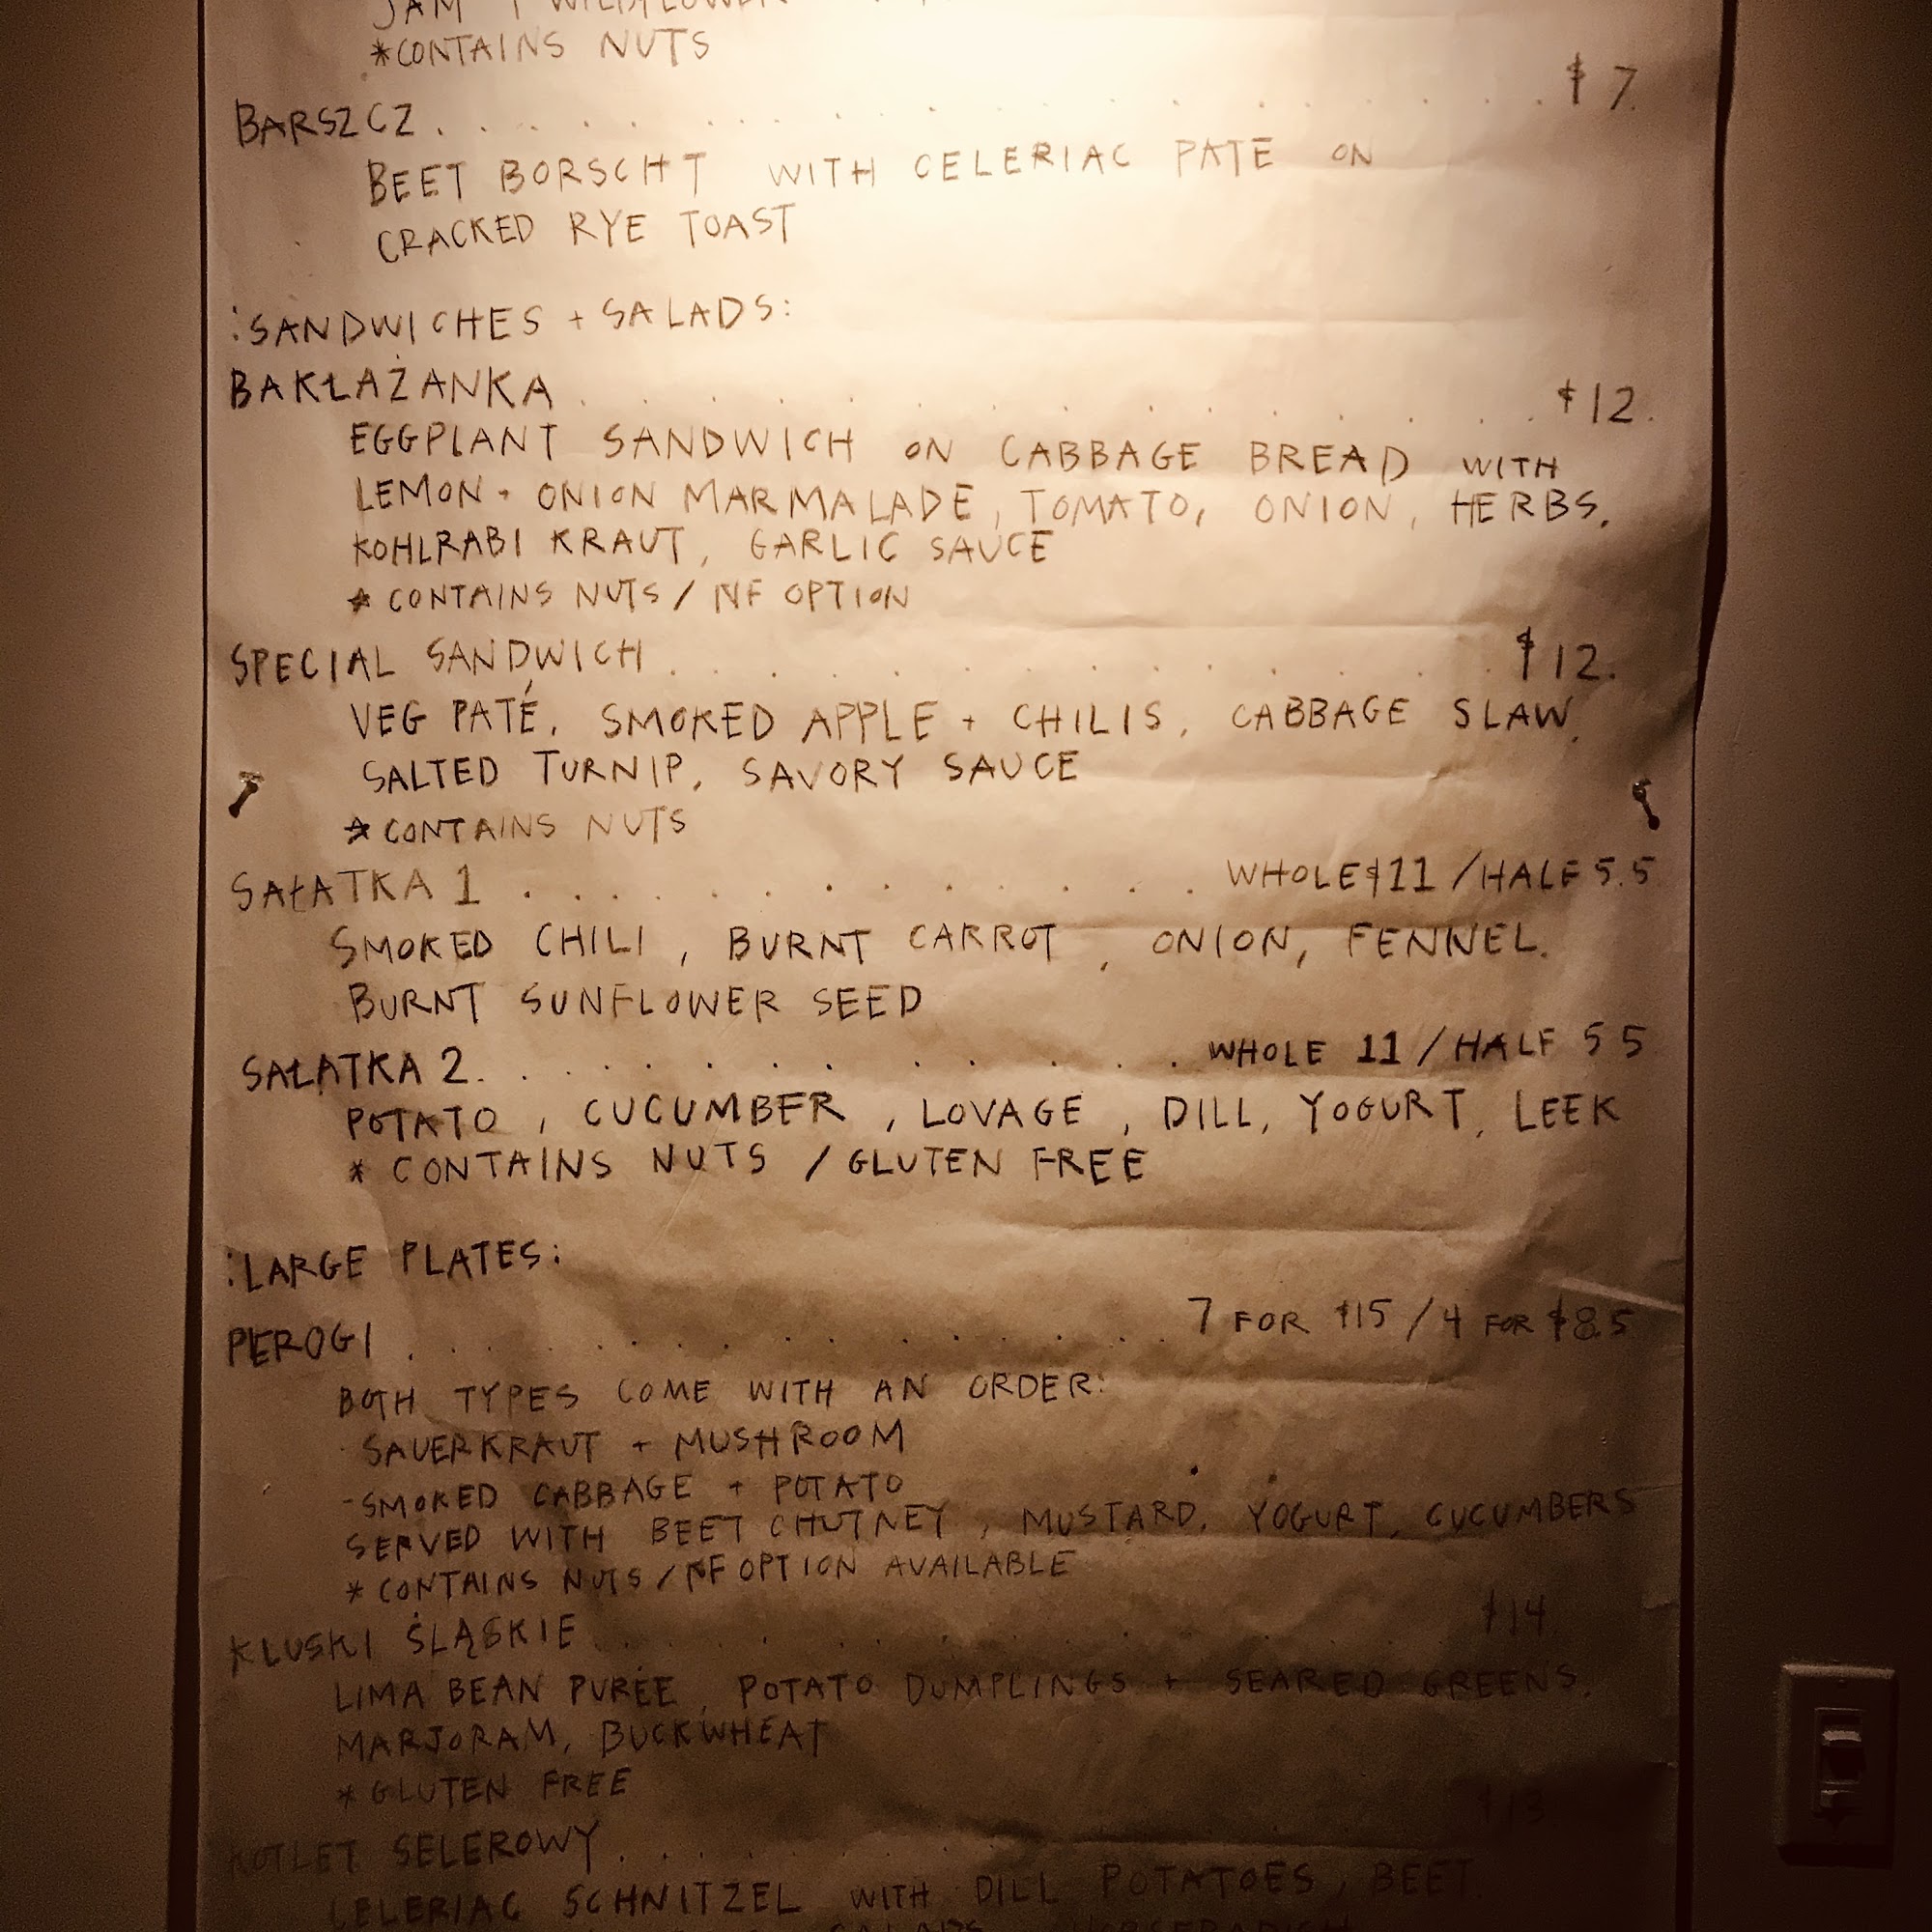 JAM + WILDFLOWER
*CONTAINS NUTS
BARSZCZ. . . . . . . . . . . . . . . . $7.
BEET BORSCHT WITH CELERIAC PATE ON
CRACKED RYE TOAST
:SANDWICHES + SALADS:
BAKŁAŻANKA . . . . . . . . . . . . . . $12.
EGGPLANT SANDWICH ON CABBAGE BREAD WITH
LEMON + ONION MARMALADE, TOMATO, ONION, HERBS,
KOHLRABI KRAUT, GARLIC SAUCE
* CONTAINS NUTS / NF OPTION
SPECIAL SANDWICH . . . . . . . . . . . $12.
VEG PATÉ, SMOKED APPLE + CHILIS, CABBAGE SLAW,
SALTED TURNIP, SAVORY SAUCE
* CONTAINS NUTS
SAŁATKA 1 . . . . . . . . . . . . WHOLE $11 / HALF 5.5
SMOKED CHILI, BURNT CARROT, ONION, FENNEL.
BURNT SUNFLOWER SEED
SAŁATKA 2. . . . . . . . . . . . WHOLE 11 / HALF 5 5
POTATO, CUCUMBER, LOVAGE, DILL, YOGURT, LEEK
* CONTAINS NUTS / GLUTEN FREE
:LARGE PLATES:
PEROGI . . . . . . . . . . . . . 7 FOR $15 / 4 FOR $8.5
BOTH TYPES COME WITH AN ORDER:
- SAUERKRAUT + MUSHROOM
- SMOKED CABBAGE + POTATO
SERVED WITH BEET CHUTNEY, MUSTARD, YOGURT, CUCUMBERS
* CONTAINS NUTS / NF OPTION AVAILABLE
KLUSKI ŚLĄSKIE. . . . . . . . . . . . $14.
LIMA BEAN PURÉE, POTATO DUMPLINGS + SEARED GREENS,
MARJORAM, BUCKWHEAT
* GLUTEN FREE
KOTLET SELEROWY. . . . . . . . $13
CELERIAC SCHNITZEL WITH DILL POTATOES, BEET
SALADS HORSERADISH